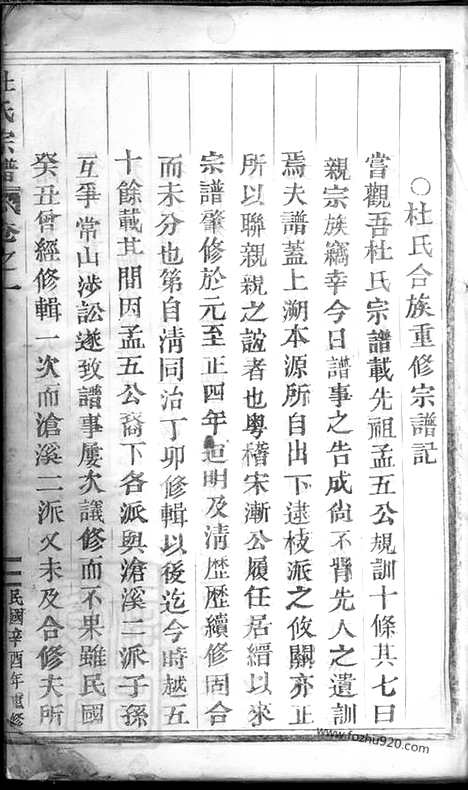 〇杜氏合族重修宗譜記
嘗觀吾杜氏宗譜載先祖孟五公規訓十條其七曰
親宗族竊幸今日譜事之告成尙不背先人之遺訓
焉夫譜蓋上溯本源所自出下逮枝派之攸關亦正
所以聯親親之誼者也粵稽宋漸公履任居縉以來
宗譜肇修於元至正四年迨明及淸歷歷續修固合
而未分也第自淸同治丁卯修輯以後迄今時越五
十餘載其間因孟五公裔下各派與滄溪二派子孫
互爭常山涉訟遂致譜事屢次議修而不果雖民國
癸丑曾經修輯一次而滄溪二派又未及合修夫所
杜氏宗譜 卷之一
民國辛酉年重修
www.fozhu920.com